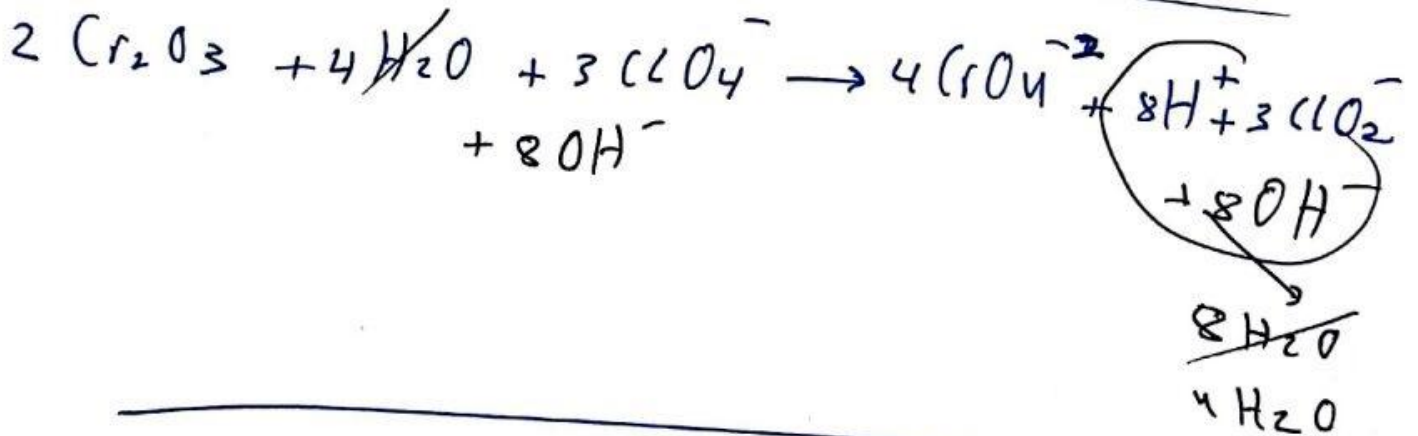 2 Cr₂O₃ + 4 H₂O + 3 ClO₄⁻ → 4 CrO₄⁻² + 8H⁺ + 3 ClO₂⁻
+ 8 OH⁻ + 8 OH⁻
8 H₂O
4 H₂O